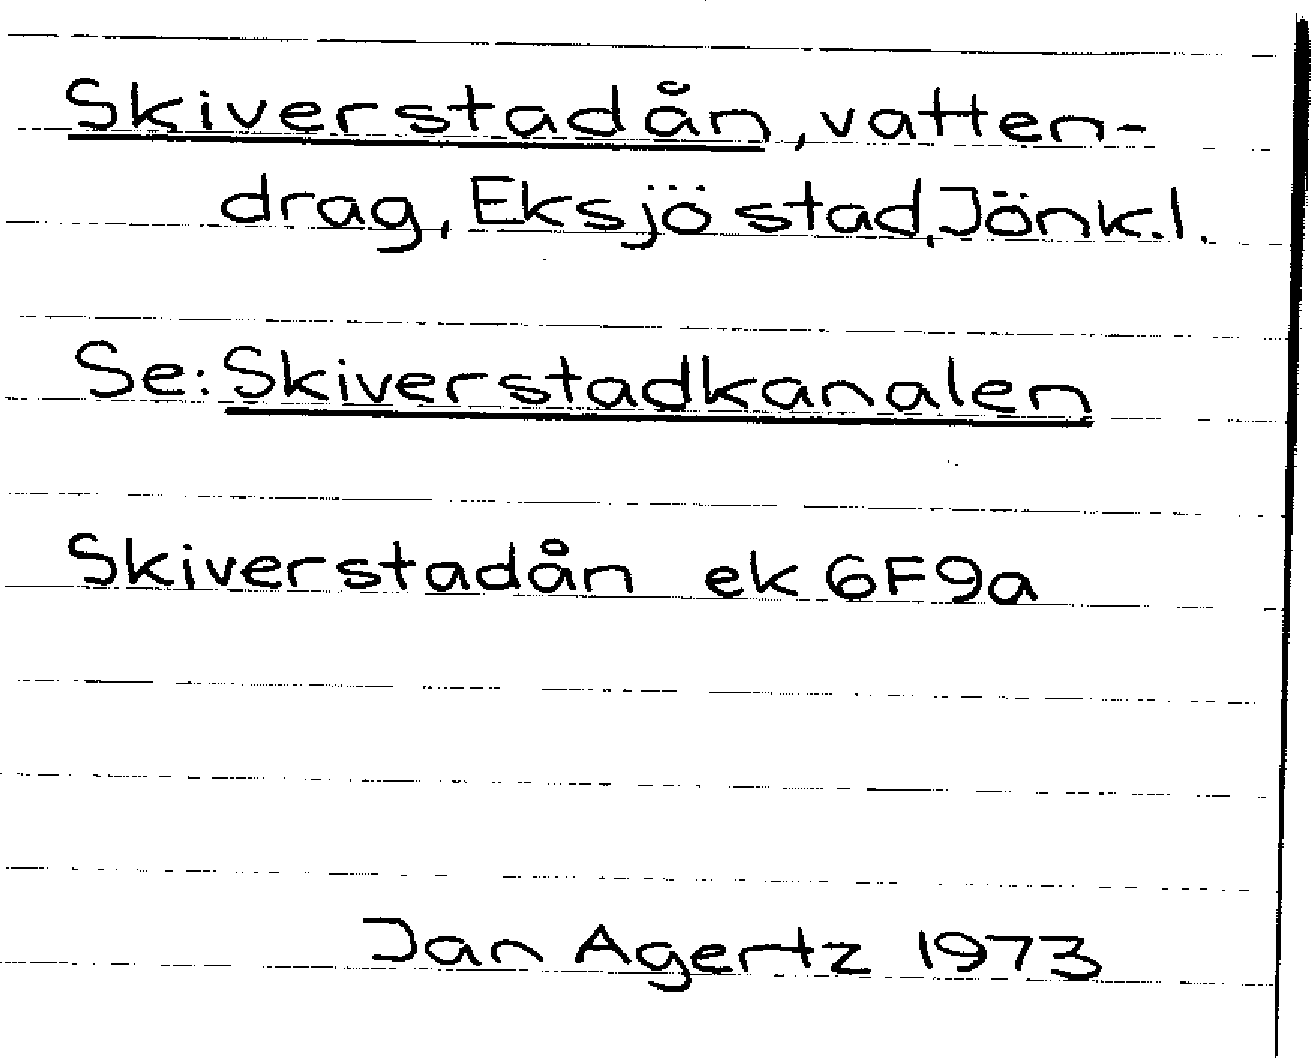 Skiverstadån, vatten-
drag, Eksjö stad, Jönk.l.
Se: Skiverstadkanalen
Skiverstadån ek 6F9a
Jan Agertz 1973